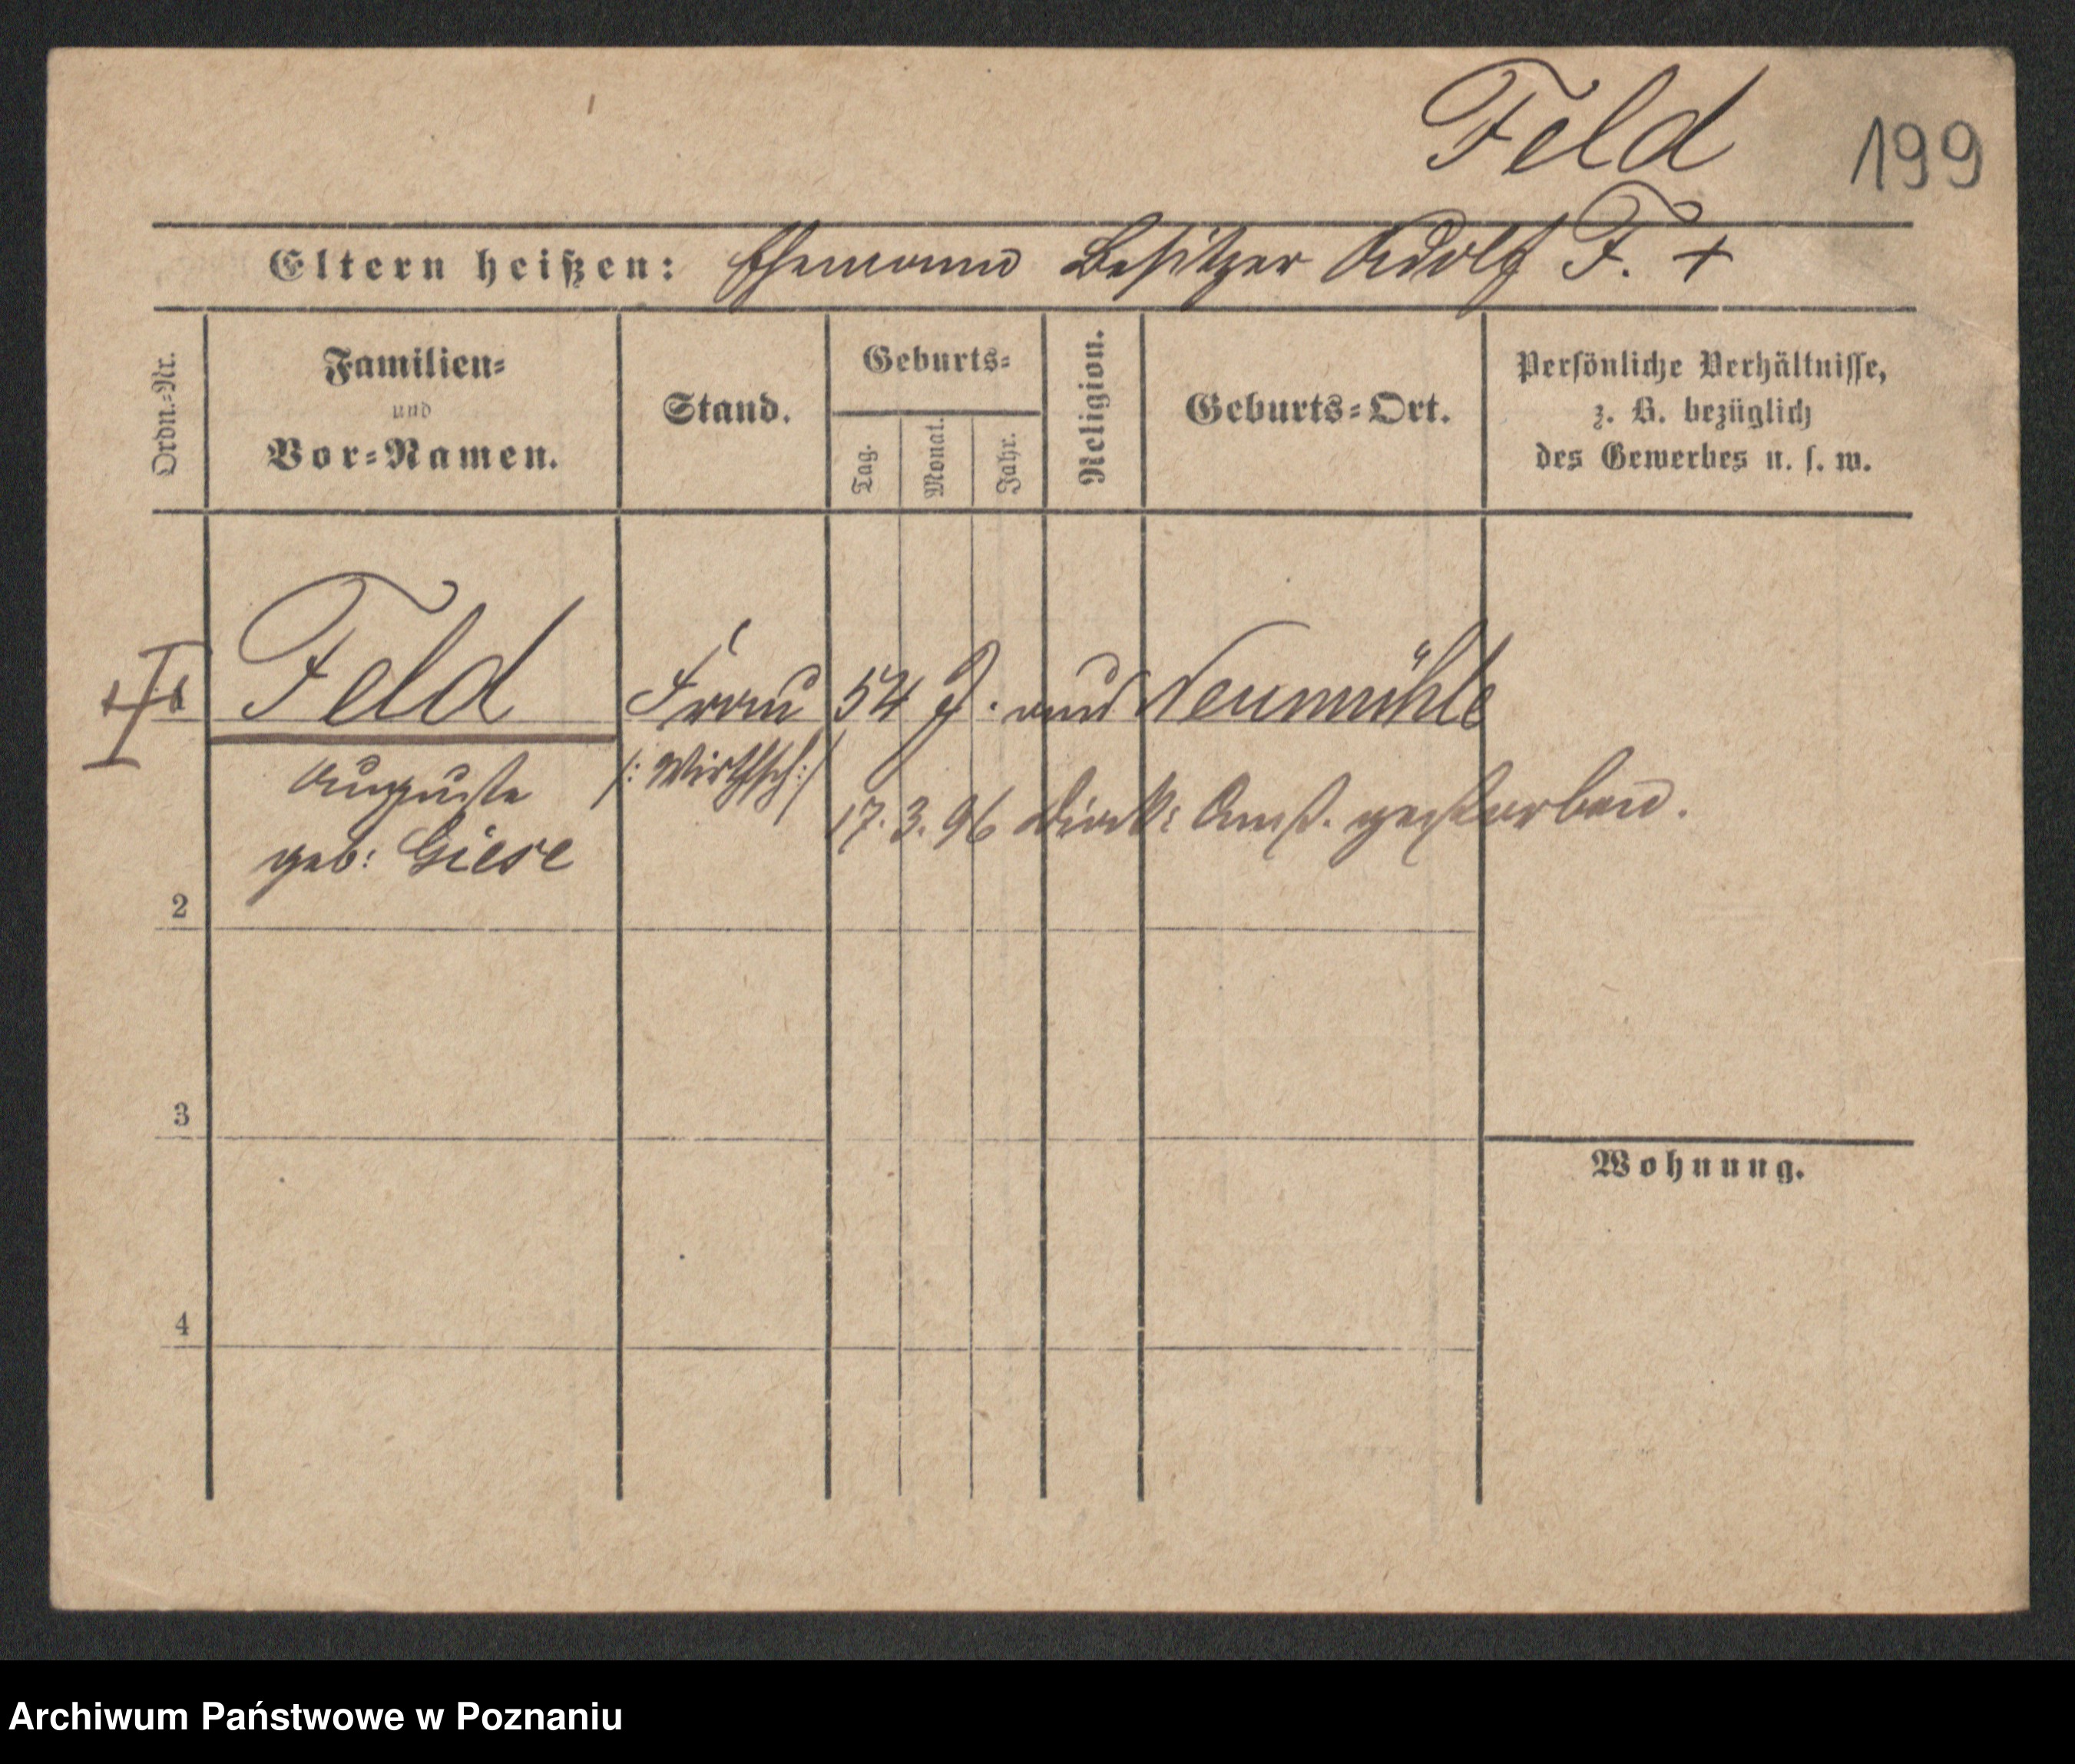 Feld
199
Eltern heißen: Ehemann Besitzer Adolf F. +
Ordn.-Nr.
Familien-
und
Vor-Namen.
Stand.
Geburts-
Tag.
Monat.
Jahr.
Religion.
Geburts-Ort.
Persönliche Verhältnisse,
z. B. bezüglich
des Gewerbes u. s. w.
Feld Frau 54 J. aus Neumühle
Auguste /: Wirthsch :/
geb: Giese
17. 3. 96 Diak: Anst. gestorben.
2
3
Wohnung.
4
Archiwum Państwowe w Poznaniu